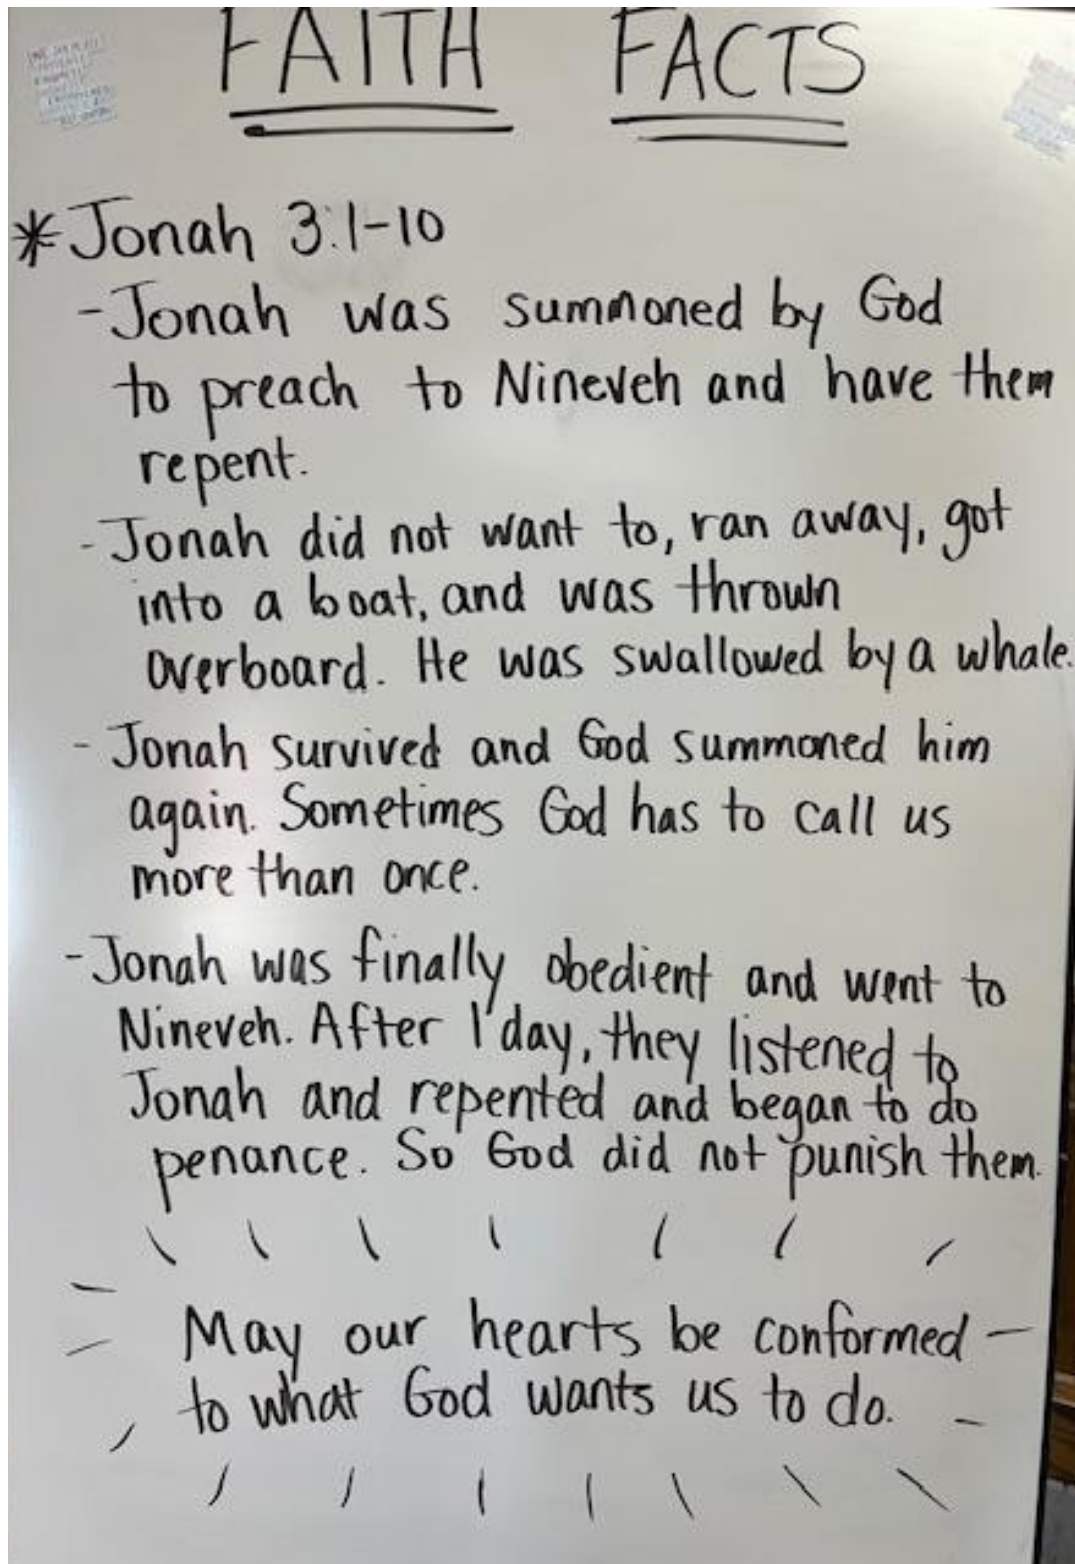 FAITH FACTS
*Jonah 3:1-10
-Jonah was summoned by God
to preach to Nineveh and have them
repent.
-Jonah did not want to, ran away, got
into a boat, and was thrown
overboard. He was swallowed by a whale.
-Jonah survived and God summoned him
again. Sometimes God has to call us
more than once.
-Jonah was finally obedient and went to
Nineveh. After 1 day, they listened to
Jonah and repented and began to do
penance. So God did not punish them.
May our hearts be conformed
to what God wants us to do.